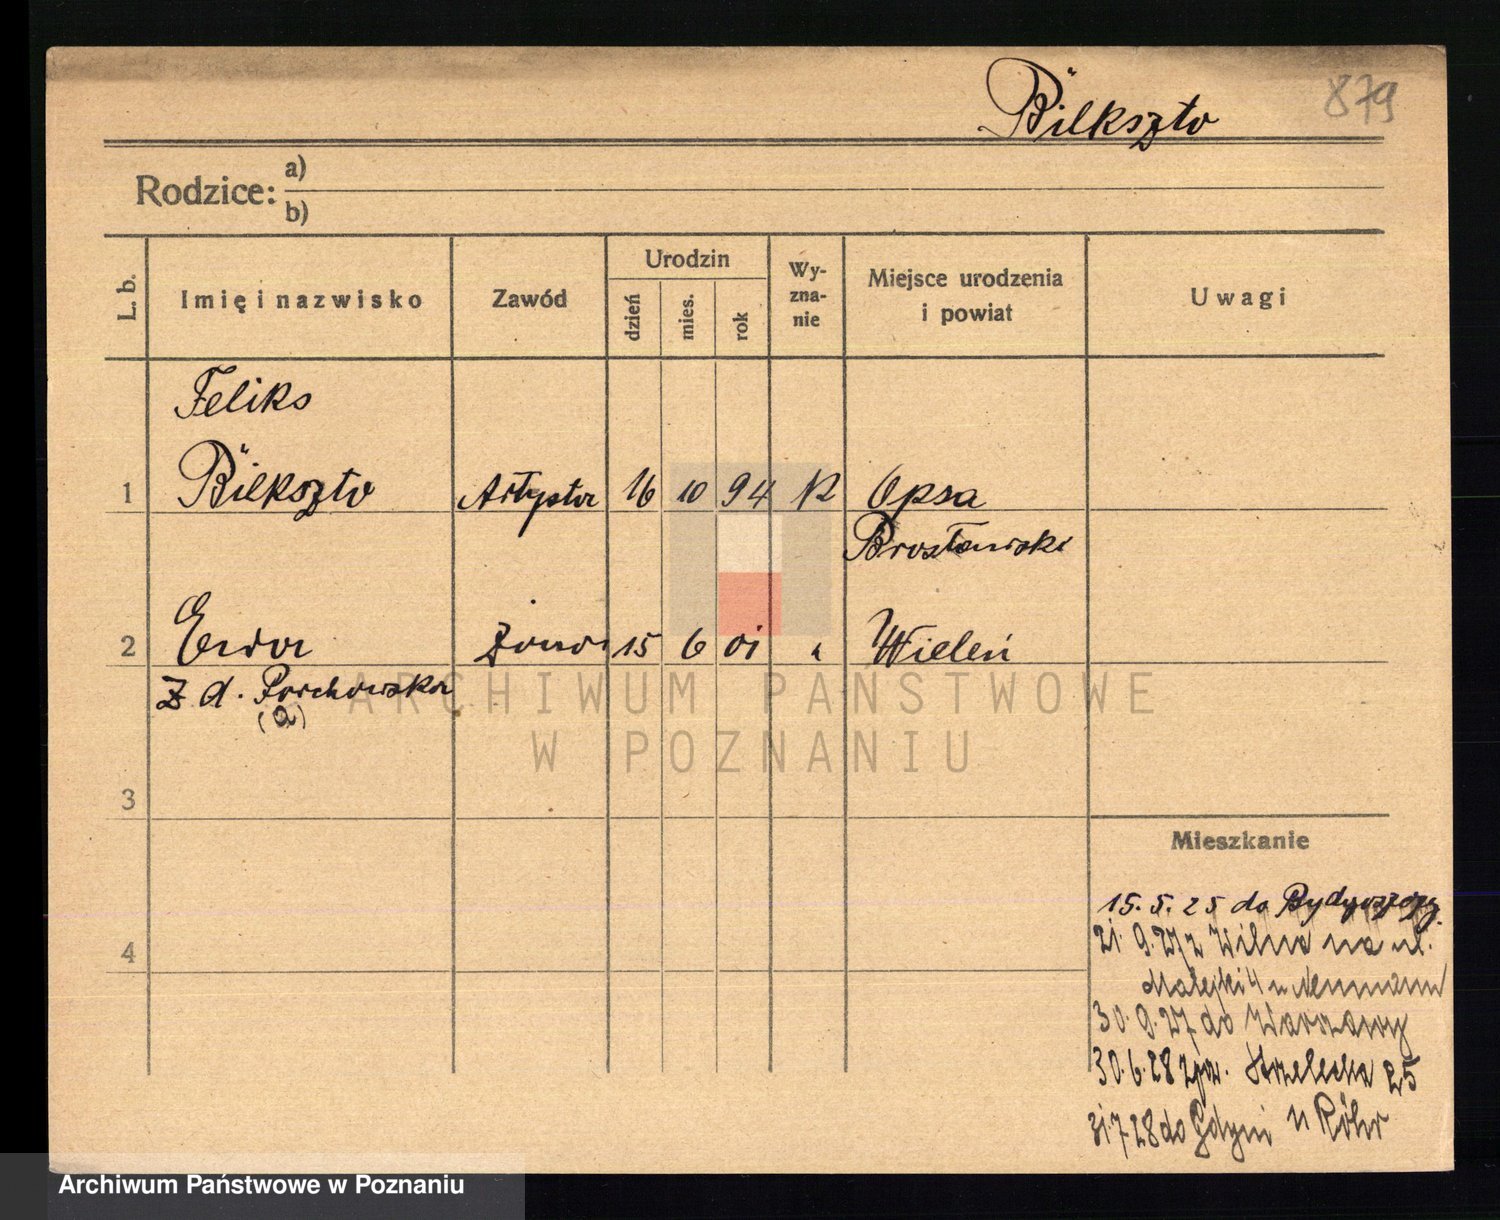 Bilkszto
879
Rodzice: a)
b)
L. b.
Imię i nazwisko
Zawód
Urodzin
dzień
mies.
rok
Wy-
zna-
nie
Miejsce urodzenia
i powiat
Uwagi
Feliks
1 Bilkszto Artysta 16 10 94 K Opsa
Brosławski
2 Ewa żona 15 6 01 " Wieleń
z d. Porchowska
(a)
3
4
Mieszkanie
15.5.25 do Bydgoszczy
21.9.27 z Wilna na ul.
Matejki 4 u Neumann
30.9.27 do Warszawy
30.6.28 Strzelecka 25
31.7.28 do Gdyni u Röhr
ARCHIWUM PAŃSTWOWE
W POZNANIU
Archiwum Państwowe w Poznaniu